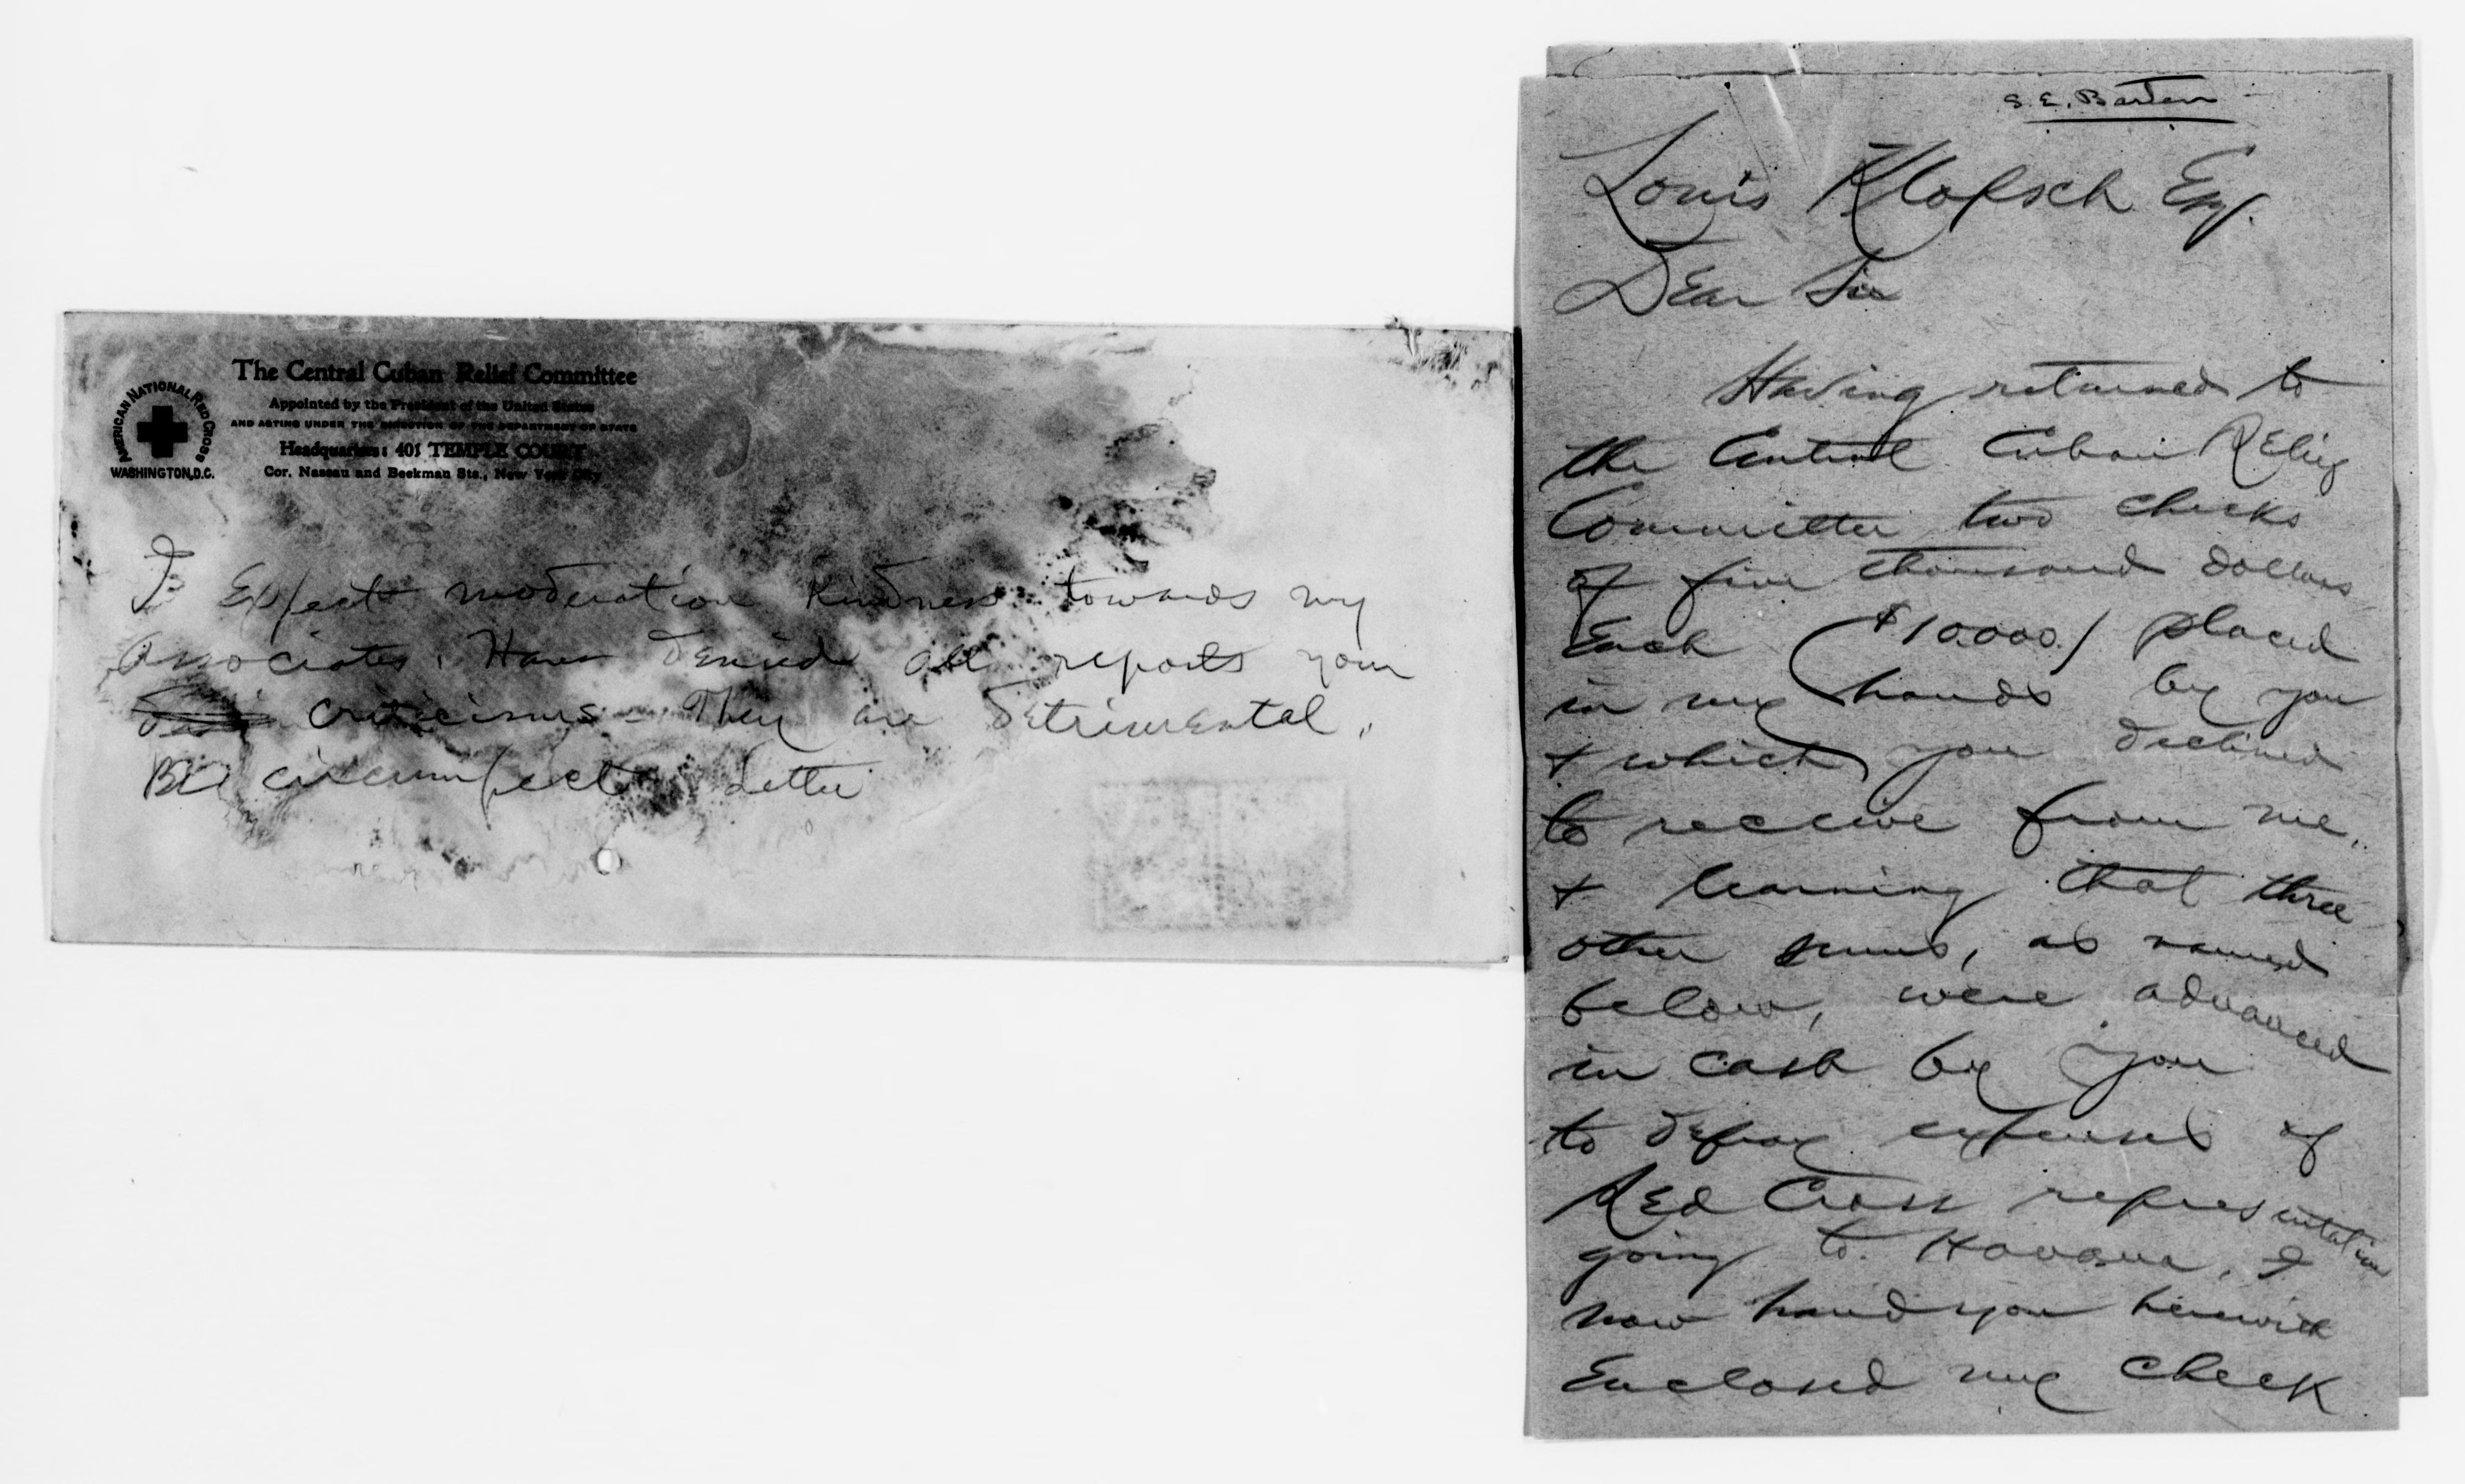 The Central Cuban Relief Committee
Appointed by the President of the United States
AND ACTING UNDER THE DIRECTION OF THE DEPARTMENT OF STATE
Headquarters: 401 TEMPLE COURT
Cor. Nassau and Beekman Sts., New York City
AMERICAN NATIONAL RED CROSS
WASHINGTON, D.C.
I Expect moderation Kindness towards my
associates. Have denied all reports your
criticisms - They are detrimental.
Be circumspect Letter
S. E. Barton
Louis Klopsch Esq.
Dear Sir
Having returned to
the Central Cuban Relief
Committee two checks
of five thousand dollars
Each ($10000.) placed
in my hands by you
+ which you declined
to receive from me,
+ learning that three
other sums, as named
below, were advanced
in cash by you
to defray expenses of
Red Cross representation
going to Havana, I
now hand you herewith
Enclosed my check